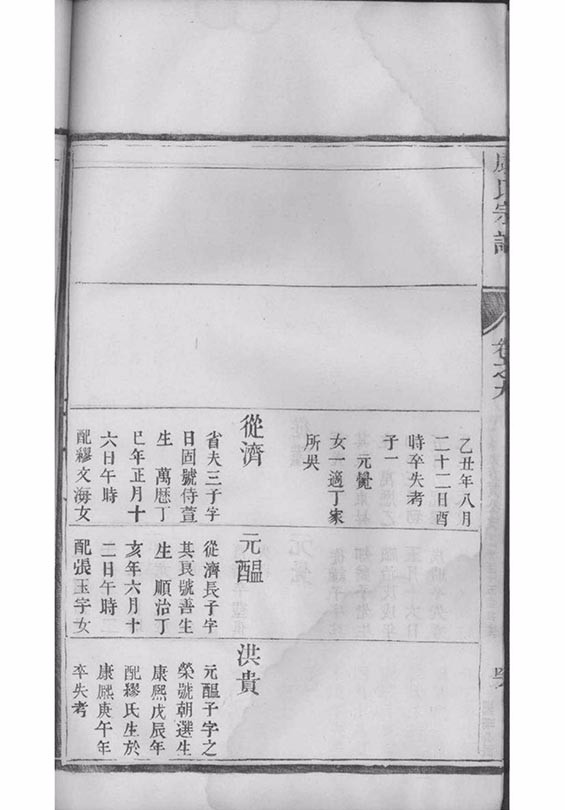 氏宗譜
卷之九
乙丑年八月
二十二日酉
時卒失考
子一
元覺
女一適丁家
所吳
從濟
省夫三子字
日固號侍萱
生萬歷丁
巳年正月十
六日午時
配繆文海女
元醖
從濟長子字
其良號善生
生順治丁
亥年六月十
二日午時
配張玉字女
洪貴
元醖子字之
榮號朝選生
康熙戊辰年
配繆氏生於
康熙庚午年
卒失考